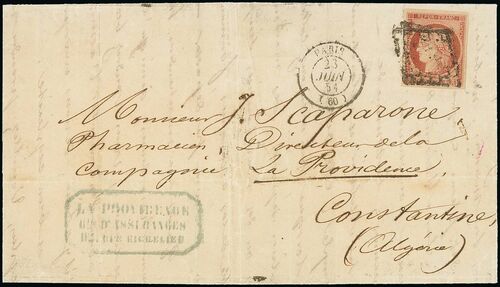 REPUB. FRANC.
PARIS
23
JUIN
51
(60)
Monsieur J. Scaparone
Pharmacien, Directeur de la
Compagnie La Providence,
Constantine,
(Algérie)
LA PROVIDENCE
CIE D'ASSURANCES
RUE RICHELIEU